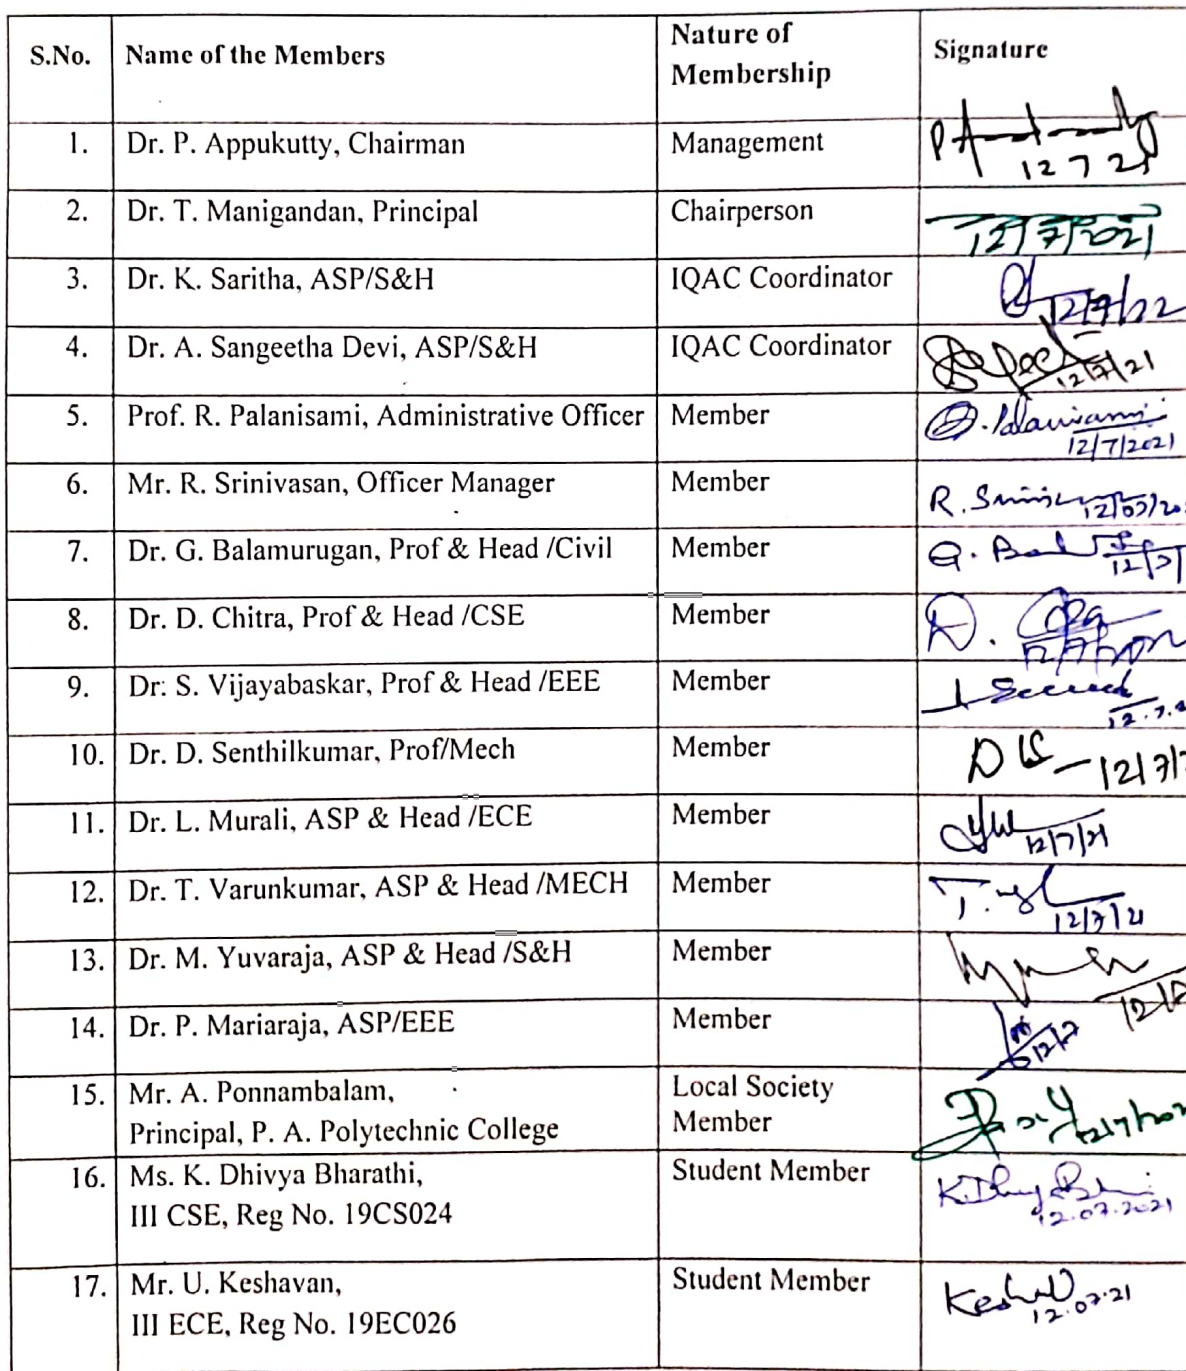 S.No. Name of the Members Nature of Membership Signature
1. Dr. P. Appukutty, Chairman Management
12 7 21
2. Dr. T. Manigandan, Principal Chairperson
12/7/2021
3. Dr. K. Saritha, ASP/S&H IQAC Coordinator
4. Dr. A. Sangeetha Devi, ASP/S&H IQAC Coordinator
12/7/21
5. Prof. R. Palanisami, Administrative Officer Member
12/7/2021
6. Mr. R. Srinivasan, Officer Manager Member
7. Dr. G. Balamurugan, Prof & Head /Civil Member
8. Dr. D. Chitra, Prof & Head /CSE Member
9. Dr. S. Vijayabaskar, Prof & Head /EEE Member
10. Dr. D. Senthilkumar, Prof/Mech Member
11. Dr. L. Murali, ASP & Head /ECE Member
12/7/21
12. Dr. T. Varunkumar, ASP & Head /MECH Member
12/7/21
13. Dr. M. Yuvaraja, ASP & Head /S&H Member
14. Dr. P. Mariaraja, ASP/EEE Member
12/7
15. Mr. A. Ponnambalam, Local Society
Principal, P. A. Polytechnic College Member
16. Ms. K. Dhivya Bharathi, Student Member
III CSE, Reg No. 19CS024
12.07.2021
17. Mr. U. Keshavan, Student Member
III ECE, Reg No. 19EC026
12.07.21